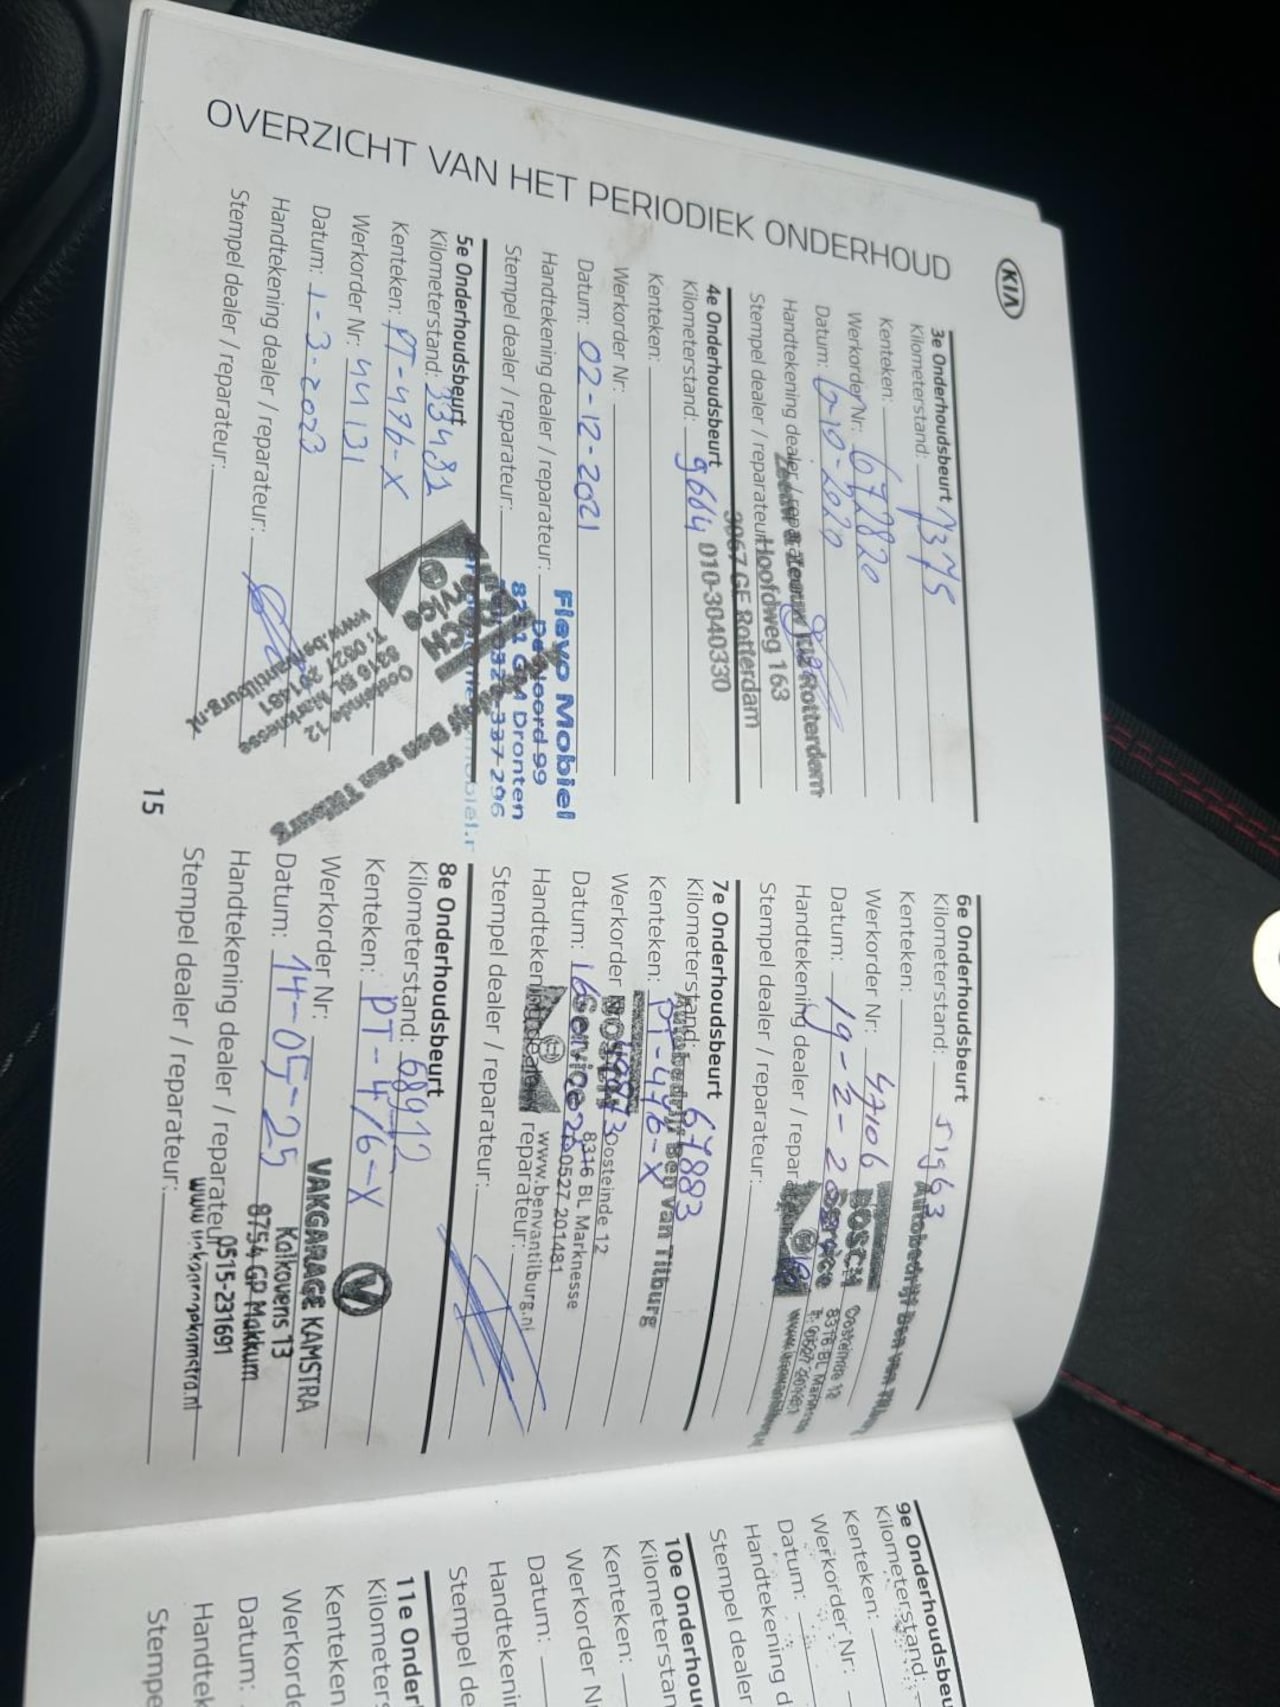 KIA
OVERZICHT VAN HET PERIODIEK ONDERHOUD
3e Onderhoudsbeurt
Kilometerstand: 7375
Kenteken:
Werkorder Nr: 672820
Datum: 6-10-2020
Handtekening dealer / reparateur:
Stempel dealer / reparateur:
Zeeuw & Zeeuw Rotterdam
Hoofdweg 163
3067 GE Rotterdam
010-3040330
4e Onderhoudsbeurt
Kilometerstand: 9664
Kenteken:
Werkorder Nr:
Datum: 02-12-2021
Handtekening dealer / reparateur:
Stempel dealer / reparateur:
Flevo Mobiel
De Noord 99
Dronten
337-296
5e Onderhoudsbeurt
Kilometerstand: 33481
Kenteken: PT-476-X
Werkorder Nr: 44131
Datum: 1-3-2023
Handtekening dealer / reparateur:
Stempel dealer / reparateur:
Ben van Tilburg
BOSCH
Service
Oosteinde 12
8316 BL Marknesse
T: 0527 201481
www.benvantilburg.nl
15
6e Onderhoudsbeurt
Kilometerstand: 51963
Kenteken:
Werkorder Nr: 47106
Datum: 19-2-
Handtekening dealer / reparateur:
Stempel dealer / reparateur:
Autobedrijf Ben van Tilburg
BOSCH
Service
Oosteinde 12
8316 BL Marknesse
T: 0527 201481
7e Onderhoudsbeurt
Kilometerstand: 67883
Kenteken: PT-476-X
Werkorder
Datum: 16
Handtekening dealer / reparateur:
Stempel dealer / reparateur:
Autobedrijf Ben van Tilburg
BOSCH
Service
Oosteinde 12
8316 BL Marknesse
0527 201481
www.benvantilburg.nl
8e Onderhoudsbeurt
Kilometerstand: 68912
Kenteken: PT-476-X
Werkorder Nr:
Datum: 14-05-25
Handtekening dealer / reparateur:
Stempel dealer / reparateur:
V
VAKGARAGE KAMSTRA
Kalkovens 13
8754 GP Makkum
0515-231691
www.vakgaragekamstra.nl
9e Onderhoudsbeu
Kilometerstand:
Kenteken:
Werkorder Nr:
Datum:
Handtekening d
Stempel dealer
10e Onderhou
Kilometerstan
Kenteken:
Werkorder N
Datum:
Handtekenin
Stempel de
11e Onder
Kilometers
Kenteken
Werkorde
Datum:
Handtek
Stempe